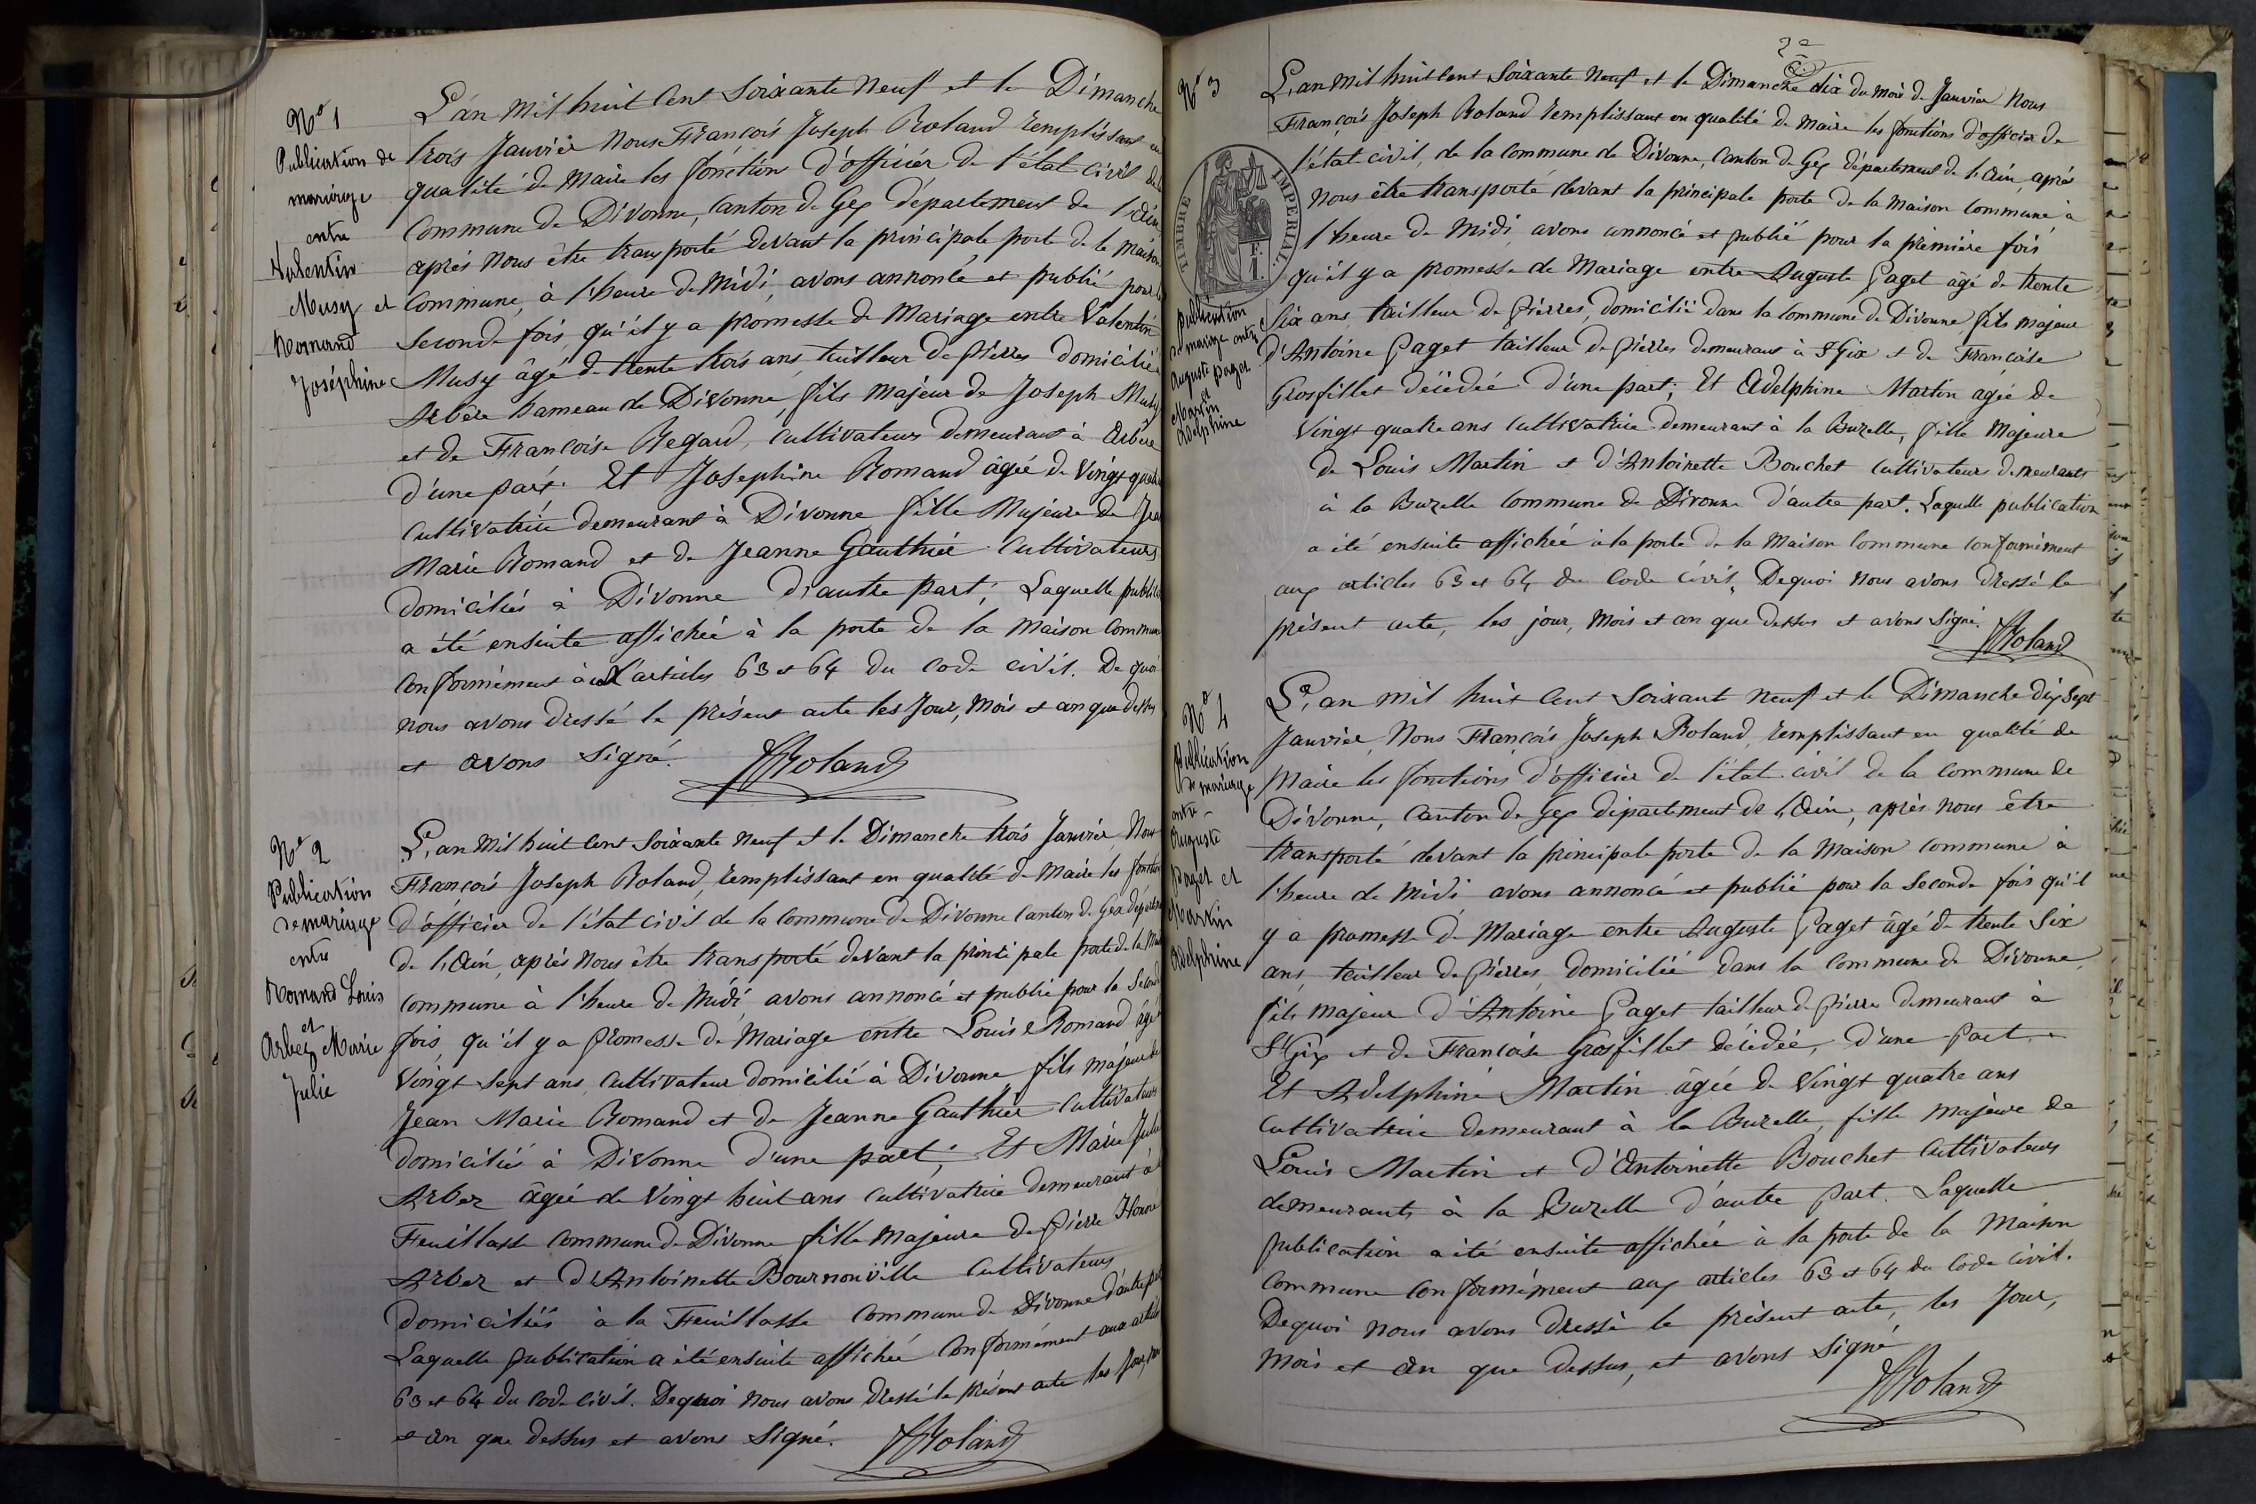 Nº 1
Publication de
mariage
entre
Valentin
Musy et
Romand
Joséphine
L'an mil huit cent soixante neuf et le Dimanche
trois Janvier Nous François Joseph Roland remplissant en
qualité de Maire les fonction d'officier de l'état civil de la
Commune de Divonne, Canton de Gex département de l'Ain
après nous être transporté devant la principale porte de la maison
Commune, à l'heure de Midi, avons annoncé et publié pour la
seconde fois, qu'il y a promesse de Mariage entre Valentin
Musy âgé de trente trois ans, tailleur de pierres domicilié
Arbère hameau de Divonne, fils majeur de Joseph Musy
et de Françoise Regard, cultivateurs demeurant à Arbère
d'une part. Et Josephine Romand âgée de vingt quatre
cultivatrice demeurant à Divonne fille Majeure de Jean
Marie Romand et de Jeanne Gauthier cultivateurs
domiciliés à Divonne d'autre part; Laquelle public
a été ensuite affichée à la porte de la Maison Commune
conformément aux articles 63 et 64 du code civil. De quoi
nous avons dressé le présent acte les jour, mois et an que dessus
et avons signé.
FJRoland
Nº 2
Publication
de mariage
entre
Romand Louis
et
Arbez Marie
Julie
L'an mil huit cent soixante neuf et le Dimanche trois Janvier, Nous
François Joseph Roland, remplissant en qualité de Maire les fonction
d'officier de l'état civil de la commune de Divonne canton de Gex départ
de l'Ain, après nous être transporté devant la principale porte de la Mai
commune à l'heure de Midi, avons annoncé et publié pour la seconde
fois, qu'il y a promesse de Mariage entre Louis Romand âgé
vingt sept ans, cultivateur domicilié à Divonne fils majeur de
Jean Marie Romand et de Jeanne Gauthier cultivateurs
domiciliés à Divonne d'une part; Et Marie Julie
Arbez âgée de vingt huit ans cultivatrice demeurant à
Feuillasse commune de Divonne fille majeure de Pierre Honoré
Arbez et d'Antoinette Bournonville cultivateurs
domiciliés à la Feuillasse commune de Divonne d'autre part
Laquelle publication a été ensuite affichée conformément aux articles
63 et 64 du code civil. De quoi nous avons dressé le présent acte les jour, mois
et an que dessus et avons signé.
FJRoland
2e
Nº 3
TIMBRE IMPERIAL
F.
1.
Publication
de mariage entre
Auguste paget
et
Martin
Adelphine
L'an mil huit cent soixante neuf et le Dimanche dix du mois de Janvier Nous
François Joseph Roland remplissant en qualité de maire les fonctions d'officier de
l'état civil, de la commune de Divonne, canton de Gex département de l'Ain, après
nous être transporté devant la principale porte de la maison commune à
l'heure de midi, avons annoncé et publié pour la première fois
qu'il y a promesse de Mariage entre Auguste Paget âgé de trente
six ans, tailleur de pierres, domicilié dans la commune de Divonne fils majeur
d'Antoine Paget tailleur de pierres demeurant à St Gix et de Françoise
Grosfillet décédée d'une part; Et Adelphine Martin agée de
vingt quatre ans cultivatrice demeurant à la Buzelle, fille Majeure
de Louis Martin et d'Antoinette Bouchet cultivateurs demeurants
à la Buzelle commune de Divonne d'autre part. Laquelle publication
a été ensuite affichée à la porte de la Maison Commune conformément
aux articles 63 et 64 du code civil. De quoi nous avons dressé le
présent acte, les jour, mois et an que dessus et avons signé.
FJRoland
Nº 4
Publication
de mariage
entre
Auguste
Paget et
Martin
Adelphine
L'an mil huit cent soixant neuf et le Dimanche dix sept
Janvier, Nous François Joseph Roland, remplissant en qualité de
Maire les fonctions d'officier de l'état civil de la commune de
Divonne, Canton de Gex département de l'Ain, après nous être
transporté devant la principale porte de la Maison commune à
l'heure de Midi avons annoncé et publié pour la seconde fois qu'il
y a promesse de Mariage entre Auguste Paget âgé de trente six
ans, tailleur de pierres, domicilié dans la commune de Divonne,
fils majeur d'Antoine Paget tailleur de pierre demeurant à
St Gix et de Françoise Grosfillet décédée, d'une part.
Et Adelphine Martin âgée de vingt quatre ans
cultivatrice demeurant à la Buzelle, fille majeure de
Louis Martin et d'Antoinette Bouchet cultivateurs
demeurants à la Buzelle d'autre part. Laquelle
publication a été ensuite affichée à la porte de la Maison
commune conformément aux articles 63 et 64 du code civil.
De quoi nous avons dressé le présent acte, les jour,
mois et an que dessus, et avons signé
FJRoland